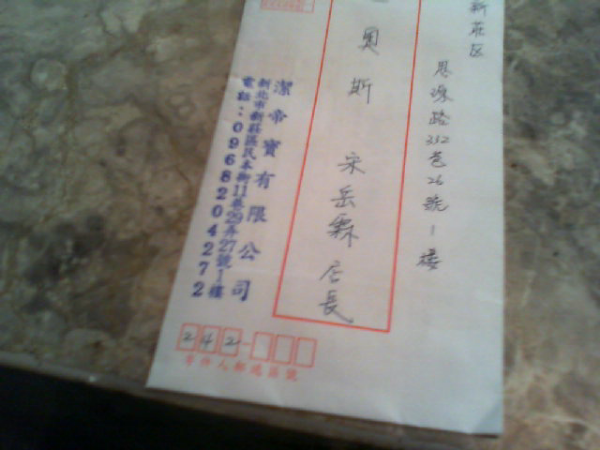 新莊区
思源路352巷26號1樓
貝斯
宋岳霖 店長
潔帝寶有限公司
新北市新莊區民本街11巷29弄27號1樓
電話：0968204272
242-
寄件人郵遞區號